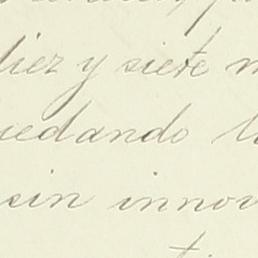 diez y siete
quedando
sin innov